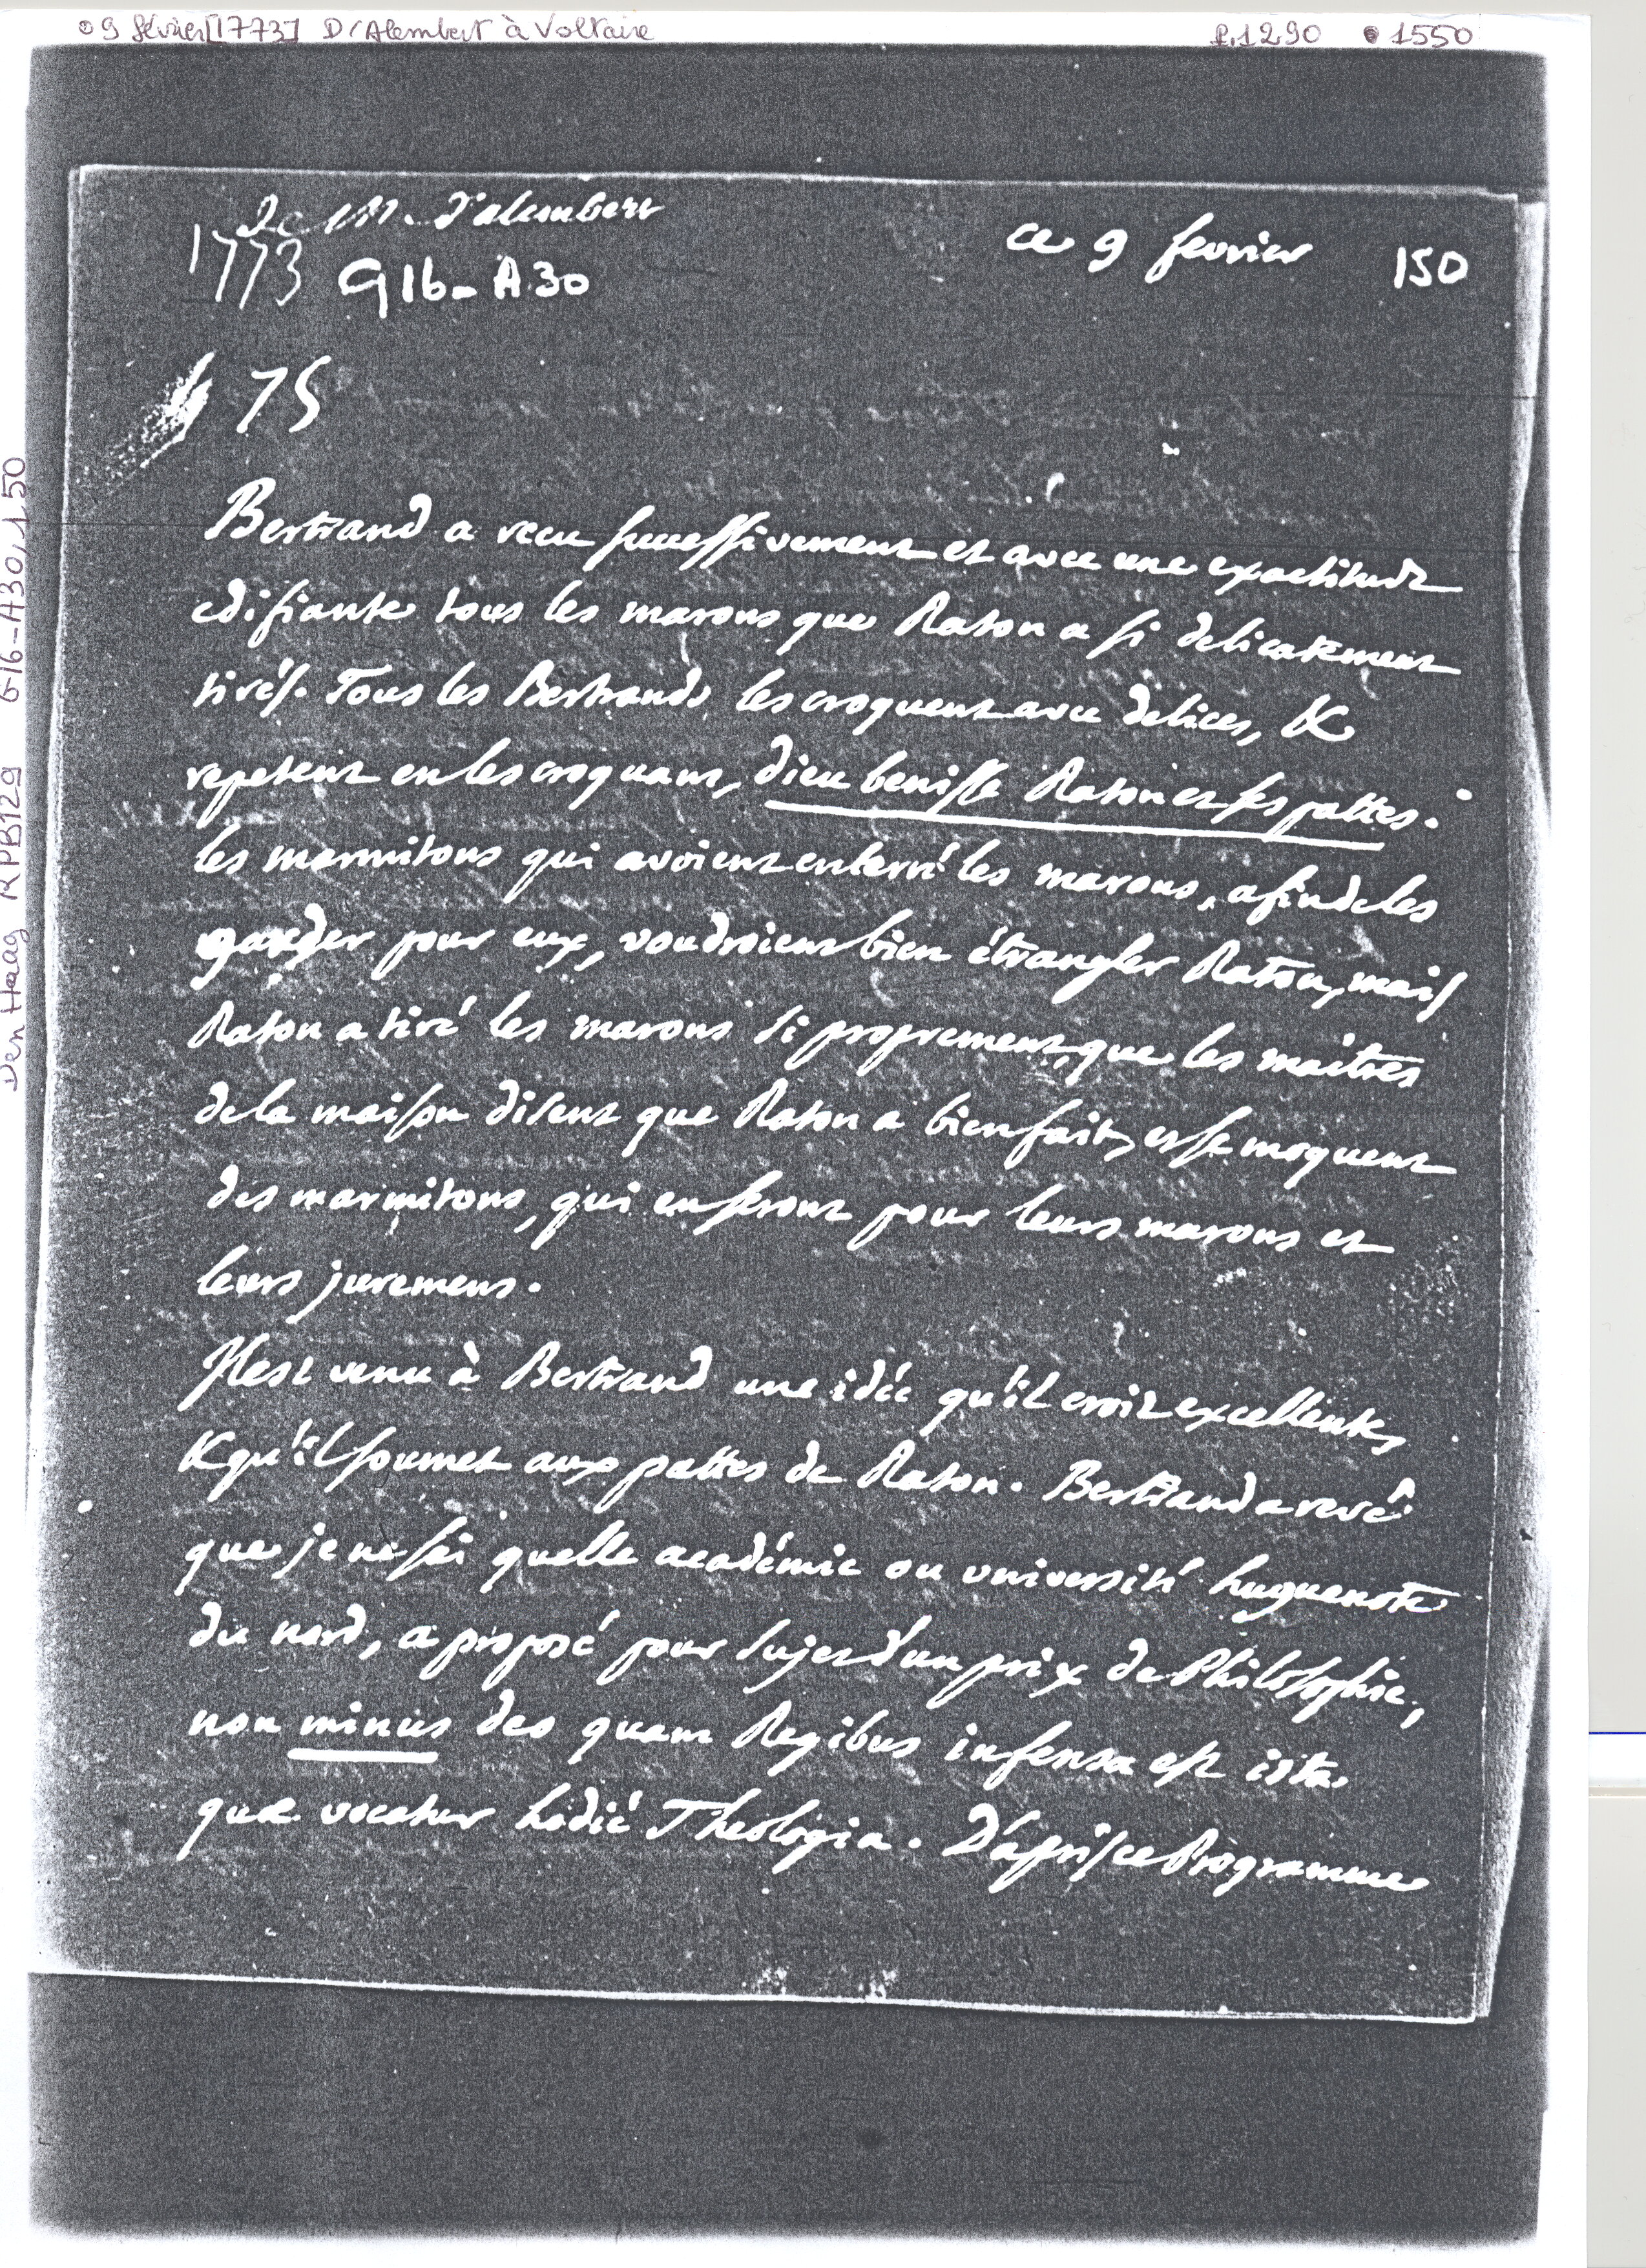 9 février [1773] D'Alembert à Voltaire p.1290 1550
Den Haag RPB129 G16-A30, 150
De M. d'alembert
1773 G16-A30
ce 9 fevrier 150
75
Bertrand a recu successivement et avec une exactitude
edifiante tous les marons que Raton a si delicatement
tirés. Tous les Bertrands les croquent avec delices, &
repetent en les croquant, dieu benisse Raton et ses pattes.
les marmitons qui avoient enterré les marons, afin de les
garder pour eux, voudroient bien étrangler Raton, mais
Raton a tiré les marons si proprement que les maitres
de la maison disent que Raton a bien fait, et se moquent
des marmitons, qui en seront pour leurs marons et
leurs juremens.
Il est venu à Bertrand une idée qu'il croit excellente,
& qu'il soumet aux pattes de Raton. Bertrand a revé
que je ne sai quelle académie ou université huguenote
du nord, a proposé pour sujet d'un prix de Philosophie,
non minus deo quam Regibus infensa est ista
quae vocatur hodiè Theologia. D'après ce Programme